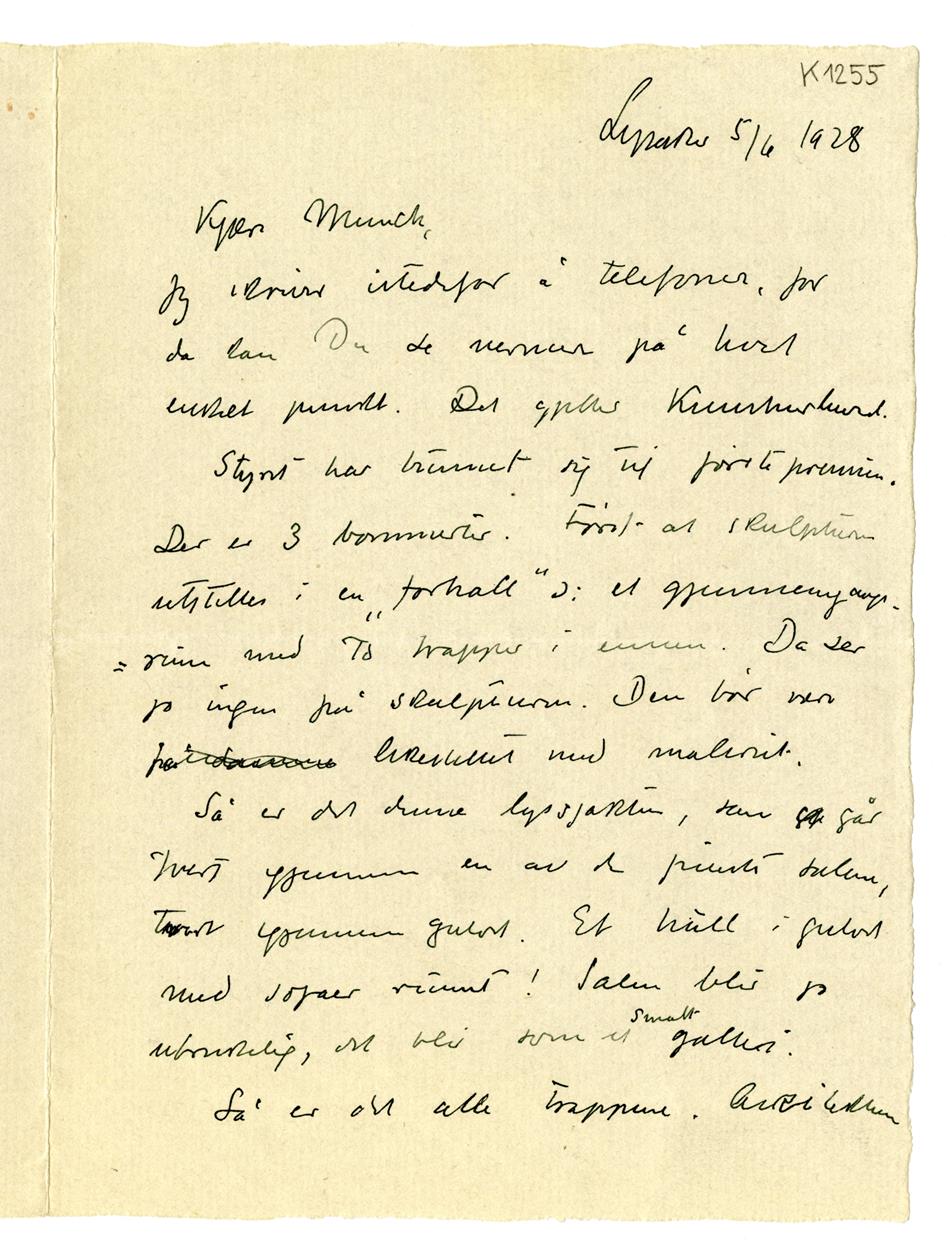 K1255
Lysaker 5/6 1928
Kjære Munch,
Jeg skriver istedefor å telefonere, for
da kan Du se nærmere på hvert
enkelt punkt. Det gjelder Kunstnerhuset.
Styret har bundet sig til første premien.
Der er 3 bommerter. Først at skulpturen
utstilles i en „forhall" ɔ: et gjennemgangs-
= rum med to trapper i enden. Da ser
jo ingen på skulpturen. Den bør være
likestillet med maleriet.
Så er det denne lyssjakten, som går
tvert gjennem en av de fineste salene,
tvert gjennem gulvet. Et hull i gulvet
med sofaer rundt! Salen blir jo
ubrukelig, det blir som et smalt galleri.
Så er det alle trappene. Arkitekten